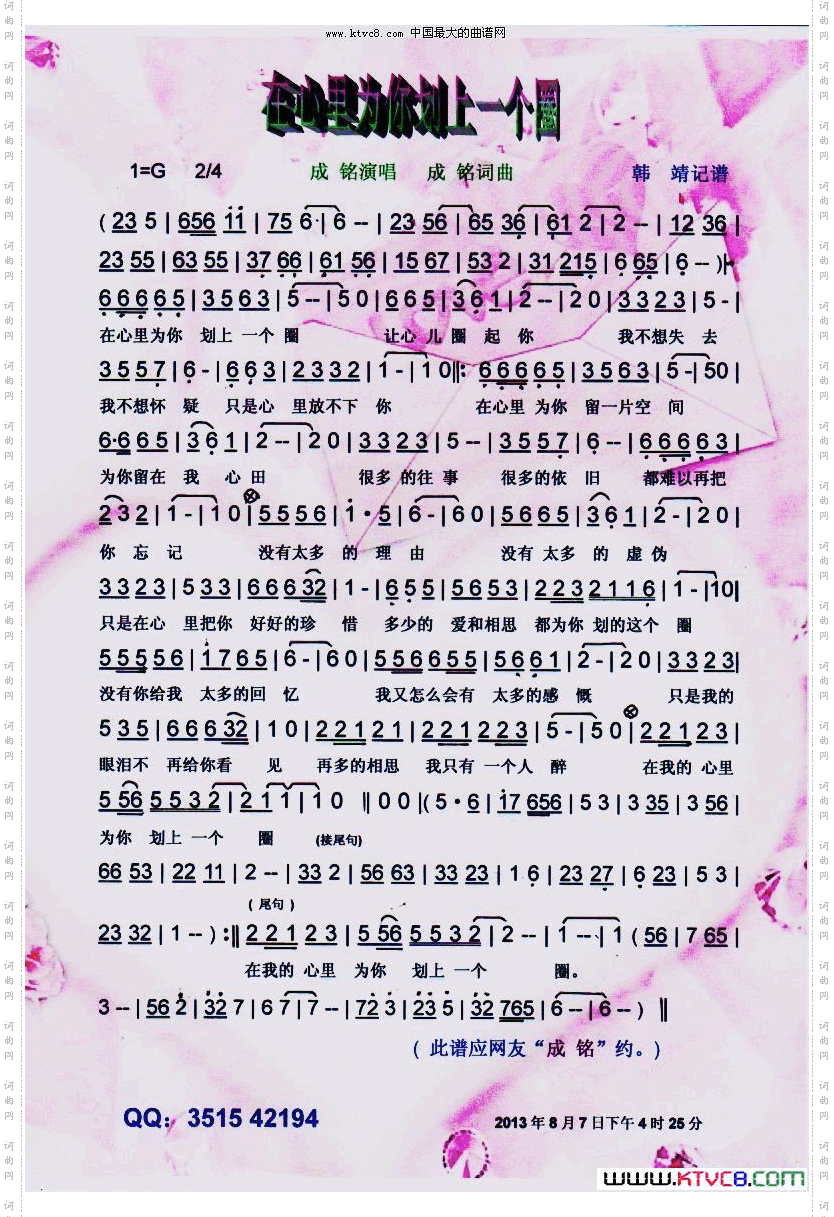 www.ktvc8.com 中国最大的曲谱网
在心里为你划上一个圈
1=G 2/4 成 铭演唱 成 铭词曲 韩 靖记谱
( 23 5 | 656 11 | 75 6 | 6 -- | 23 56 | 65 36 | 61 2 | 2 -- | 12 36 |
23 55 | 63 55 | 37 66 | 61 56 | 15 67 | 53 2 | 31 215 | 6 65 | 6 -- ) |
6 6 6 6 5 | 3 5 6 3 | 5 -- | 5 0 | 6 6 5 | 3 6 1 | 2 -- | 2 0 | 3 3 2 3 | 5 - |
在心里为你 划上 一个 圈 让心 儿 圈 起 你 我不想失 去
3 5 5 7 | 6 - | 6 6 3 | 2 3 3 2 | 1 - | 1 0 ‖: 6 6 6 6 5 | 3 5 6 3 | 5 - | 5 0 |
我不想怀 疑 只是心 里放不下 你 在心里 为你 留一片空 间
6·6 6 5 | 3 6 1 | 2 -- | 2 0 | 3 3 2 3 | 5 -- | 3 5 5 7 | 6 -- | 6 6 6 6 3 |
为你留在 我 心田 很多 的往 事 很多的依 旧 都难以再把
2 3 2 | 1 - | 1 0 | 5 5 5 6 | 1 · 5 | 6 - | 6 0 | 5 6 6 5 | 3 6 1 | 2 - | 2 0 |
你 忘 记 没有太多 的 理 由 没有 太多 的 虚 伪
3 3 2 3 | 5 3 3 | 6 6 6 32 | 1 - | 6 5 5 | 5 6 5 3 | 2 2 3 2 1 1 6 | 1 - | 1 0 |
只是在心 里把你 好好的珍 惜 多少的 爱和相思 都为你 划的这个 圈
5 5 5 5 6 | 1 7 6 5 | 6 - | 6 0 | 5 5 6 6 5 5 | 5 6 6 1 | 2 - | 2 0 | 3 3 2 3 |
没有你给我 太多的回 忆 我又怎么会有 太多的感 慨 只是我的
5 3 5 | 6 6 6 32 | 1 0 | 2 2 1 2 1 | 2 2 1 2 2 3 | 5 - | 5 0 | 2 2 1 2 3 |
眼泪不 再给你看 见 再多的相思 我只有 一个人 醉 在我的 心里
5 56 5 5 3 2 | 2 1 1 | 1 0 ‖ 0 0 |( 5 · 6 | 17 656 | 5 3 | 3 35 | 3 56 |
为你 划上 一个 圈 (接尾句)
66 53 | 22 11 | 2 -- | 33 2 | 56 63 | 33 23 | 1 6 | 23 27 | 6 23 | 5 3 |
( 尾句 )
23 32 | 1 -- ) :‖ 2 2 1 2 3 | 5 56 5 5 3 2 | 2 -- | 1 -- | 1 ( 56 | 7 65 |
在我的 心里 为你 划上 一个 圈。
3 -- | 56 2 | 32 7 | 6 7 | 7 -- | 72 3 | 23 5 | 32 765 | 6 -- | 6 -- ) ‖
( 此谱应网友“成 铭”约。)
QQ：3515 42194
2013 年 8 月 7 日下午 4 时 25 分
WWW.KTVC8.COM